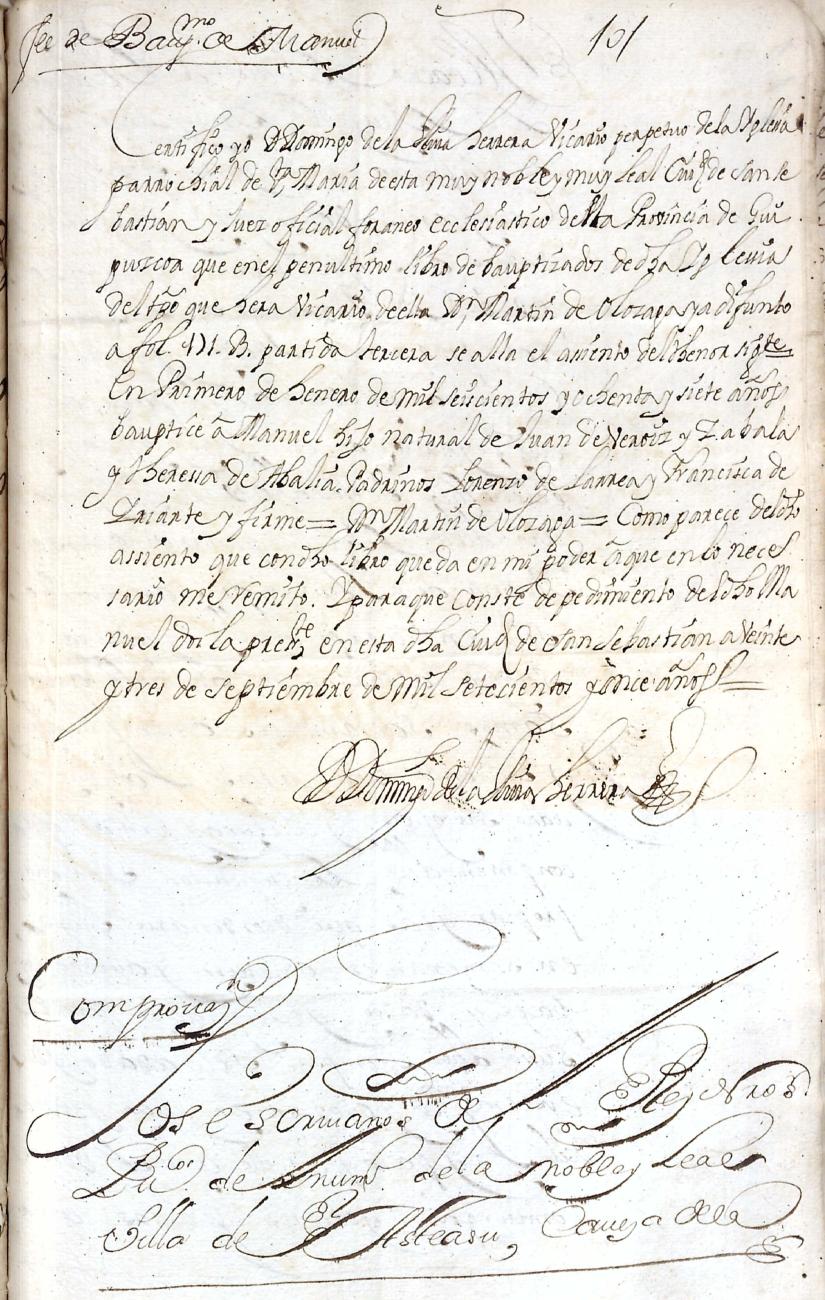 fee de Baupmo de Manuel
101
Certifico yo D Domingo de la Herrera Vicario perpetuo de la Yglesia
parrochial de Sta Maria de esta muy noble y muy leal Ciud de San Se
bastian y Juez oficial foraneo ecclesiastico desta Provincia de Gui
puzcoa que en el penultimo libro de bauptizados de dha Yglesia
del tpo que hera Vicario de ella Dn Martin de Olozaga ya difunto
a fol. B. partida tercera se alla el asiento del thenor sigte
En Primero de henero de mil seiscientos y ochenta y siete años
bauptice a Manuel hijo natural de Juan de Veroiz y Zabala
y theressa de Abalia Padrinos Lorenzo de Larrea y Francisca de
Yriarte y firme = Dn Martin de Olozaga = Como parece del dho
assiento que con dho libro queda en mi poder a que en lo neces
sario me remito. Y para que conste de pedimiento del dho Ma
nuel doi la preste en esta dha Ciud de San Sebastian a Veinte
y tres de septiembre de mil setecientos y once años =
D Domingo de la Herrera
Comprovan
Los escrivanos de El Rey nro s.
Pucos de numo de la noble y leal
Villa de Asteasu, Caveza de la